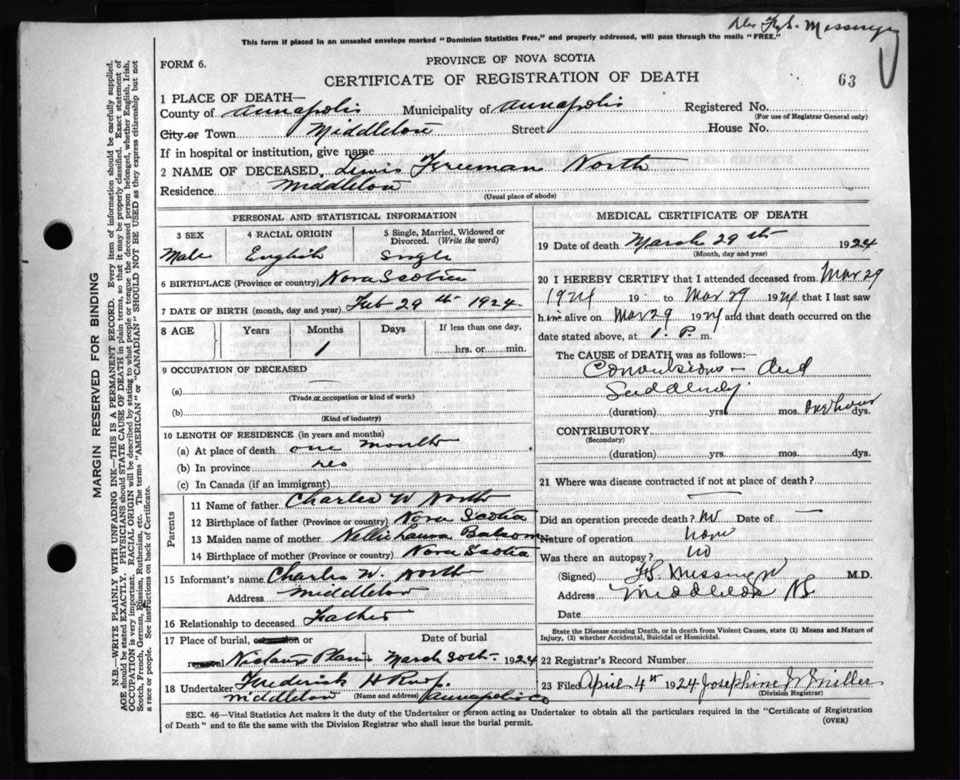 Dr. F. S. Messenger
This form if placed in an unsealed envelope marked "Dominion Statistics Free," and properly addressed, will pass through the mails "FREE."
FORM 6.
PROVINCE OF NOVA SCOTIA
CERTIFICATE OF REGISTRATION OF DEATH
63
1 PLACE OF DEATH—
County of Annapolis Municipality of Annapolis Registered No.
(For use of Registrar General only)
City or Town Middleton Street House No.
If in hospital or institution, give name
2 NAME OF DECEASED, Lewis Freeman North
Residence Middleton
(Usual place of abode)
PERSONAL AND STATISTICAL INFORMATION
3 SEX 4 RACIAL ORIGIN 5 Single, Married, Widowed or Divorced. (Write the word)
Male English Single
6 BIRTHPLACE (Province or country) Nova Scotia
7 DATE OF BIRTH (month, day and year) Feb 29th 1924.
8 AGE Years Months Days If less than one day,
1 hrs. or min.
9 OCCUPATION OF DECEASED
(a)
(Trade or occupation or kind of work)
(b)
(Kind of industry)
10 LENGTH OF RESIDENCE (in years and months)
(a) At place of death one month
(b) In province yes
(c) In Canada (if an immigrant)
Parents
11 Name of father Charles W North
12 Birthplace of father (Province or country) Nova Scotia
13 Maiden name of mother Nellie Laura Balsom
14 Birthplace of mother (Province or country) Nova Scotia
15 Informant's name Charles W. North
Address Middleton
16 Relationship to deceased Father
17 Place of burial, cremation or removal Date of burial
Nictaux Plain March 30th 1924
18 Undertaker Frederick H
Middleton (Name and address) Annapolis Co
MEDICAL CERTIFICATE OF DEATH
19 Date of death March 29th 1924
(Month, day and year)
20 I HEREBY CERTIFY that I attended deceased from Mar 29
1924 19 to Mar 29 1924 that I last saw
him alive on Mar 29 1924 and that death occurred on
date stated above, at 1. P. m.
The CAUSE of DEATH was as follows:—
Convulsions - died
Suddenly
(duration) yrs. mos. one hour dys.
CONTRIBUTORY
(Secondary)
(duration) yrs. mos. dys.
21 Where was disease contracted if not at place of death?
Did an operation precede death? No Date of —
Nature of operation none
Was there an autopsy? no
(Signed) F.S. Messenger M.D.
Address Middleton NS
Date
State the Disease causing Death, or in death from Violent Causes, state (1) Means and Nature of
Injury, (2) whether Accidental, Suicidal or Homicidal.
22 Registrar's Record Number
23 Filed April 4th 1924 Josephine W Miller
(Division Registrar)
SEC. 46—Vital Statistics Act makes it the duty of the Undertaker or person acting as Undertaker to obtain all the particulars required in the "Certificate of Registration
of Death" and to file the same with the Division Registrar who shall issue the burial permit.
(OVER)
MARGIN RESERVED FOR BINDING
N.B.—WRITE PLAINLY WITH UNFADING INK—THIS IS A PERMANENT RECORD. Every item of information should be carefully supplied.
AGE should be stated EXACTLY. PHYSICIANS should STATE CAUSE OF DEATH in plain terms, so that it may be properly classified. Exact statement of
OCCUPATION is very important. RACIAL ORIGIN will be described by stating to what people or tongue the deceased person belonged, whether English, Irish,
Scotch, French, German, Russian, Ruthenian, etc. The terms "AMERICAN" or "CANADIAN" SHOULD NOT BE USED as they express citizenship but not
a race or people. See instructions on back of Certificate.